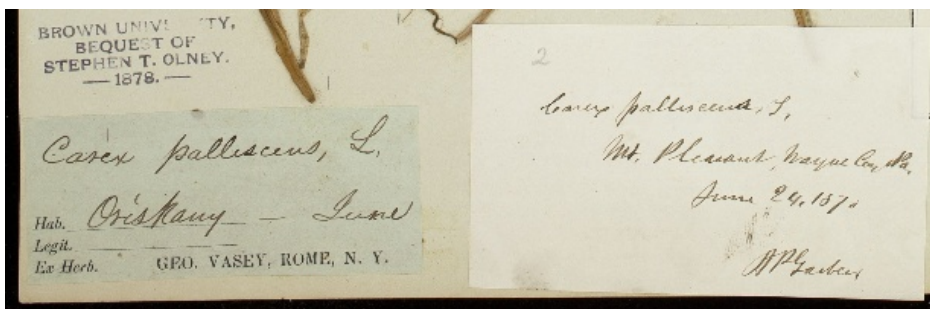 BROWN UNIVERSITY,
BEQUEST OF
STEPHEN T. OLNEY.
— 1878. —
Carex pallescens, L.
Hab. Oriskany — June
Legit.
Ex Herb. GEO. VASEY, ROME, N. Y.
2
Carex pallescens, L,
Mt. Pleasant, Wayne Co, Pa.
June 24, 187
A P Garber